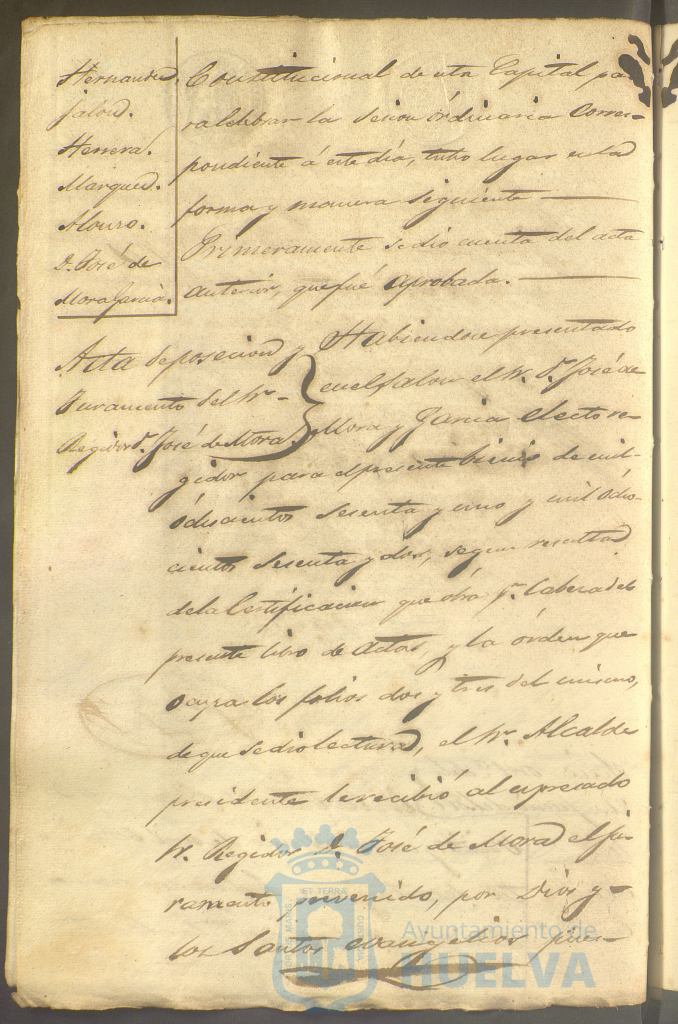 Hernandez.
Jalon.
Herrera.
Marquez.
Alonso.
D. José de
Mora Garcia.
Constitucional de esta Capital pa
ra celebrar la Sesion órdinaria Corres-
pondiente á este dia, tubo lugar en la
forma y manera siguiente
Primeramente se dió cuenta del acta
anterior, que fué aprobada.
Acta de posecion y
Juramento del Sr.
Regidor D. José de Mora
Habiendose presentado
en el Salon el Sr. D. José de
Mora y Garcia electo re-
gidor para el presente bienio de mil
óchocientos sesenta y uno y mil ócho-
cientos sesenta y dos, segun resulta
de la Certificacion que óbra pr. Cabeza del
presente libro de actas, y la órden que
ocupa los folios dos y tres del mismo,
de que se dió lectura, el Sr. Alcalde
presidente le recibió al espresado
Sr. Regidor D. José de Mora el ju-
ramento prevenido, por Dios y
los Santos evangelios pues-
Ayuntamiento de
HUELVA